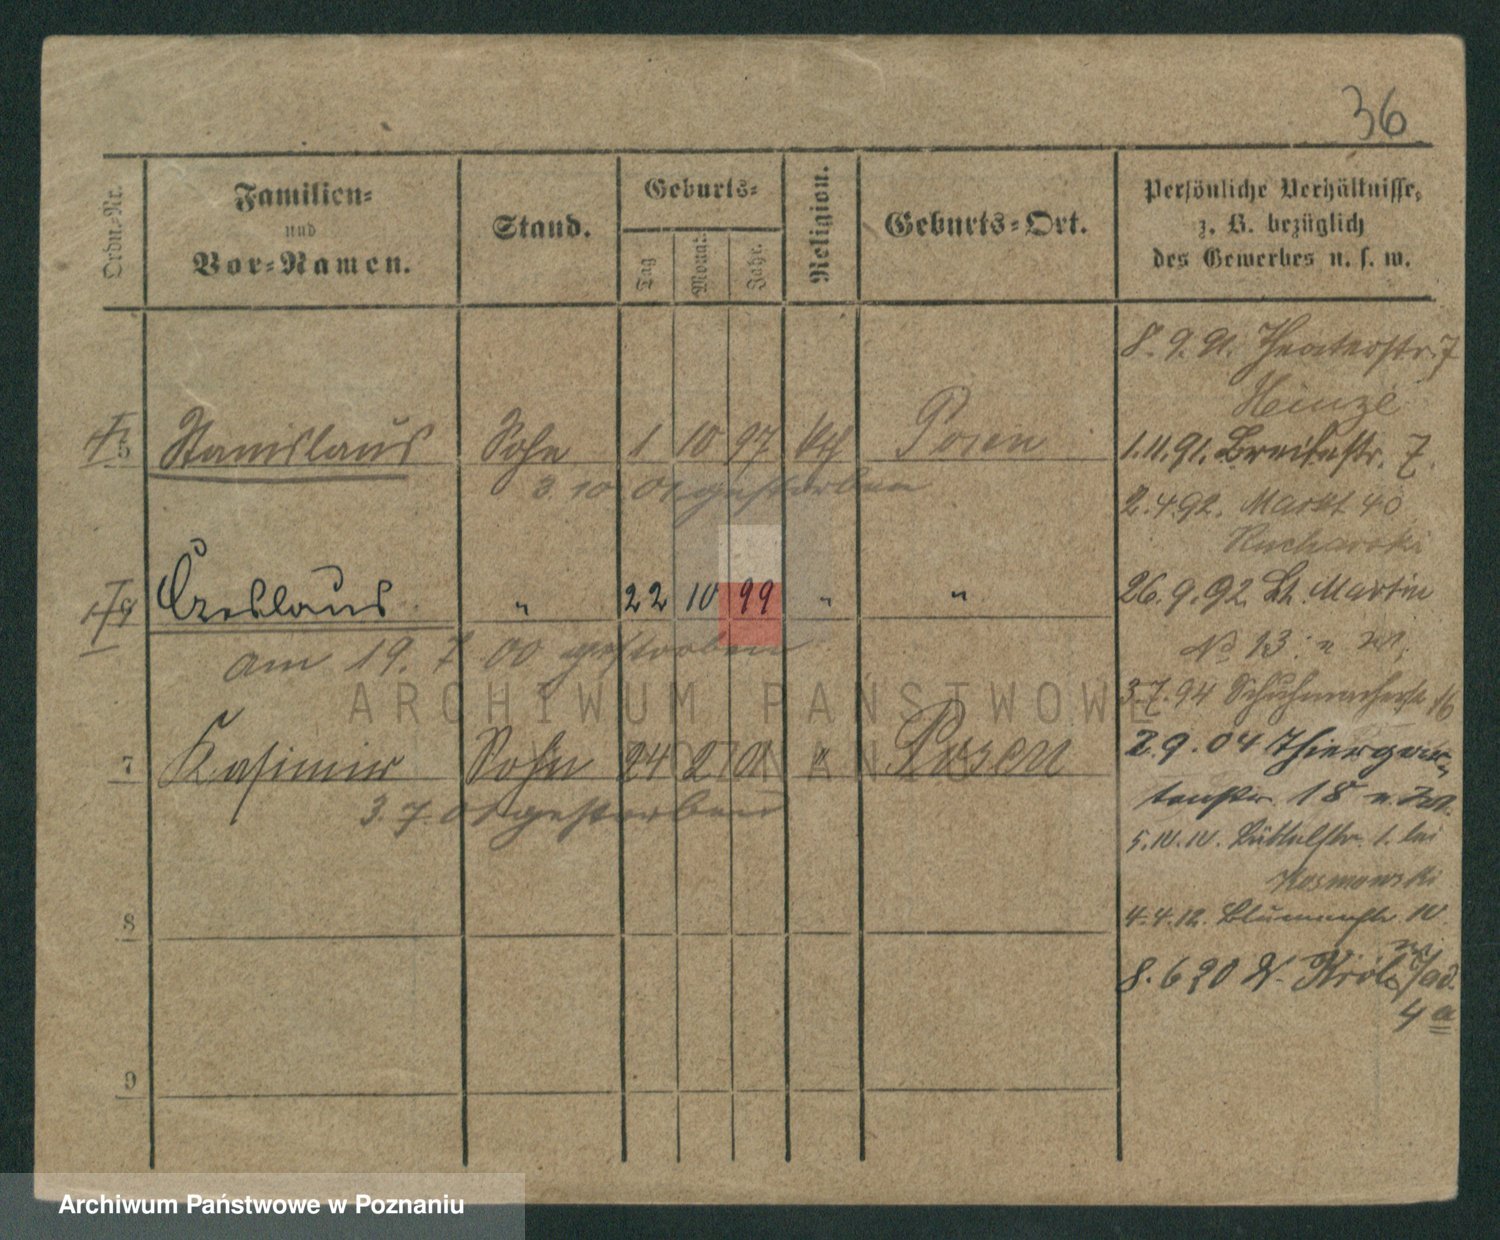 36
Ordn.-Nr.
Familien-
und
Vor-Namen.
Stand.
Geburts-
Tag
Monat
Jahr.
Religion.
Geburts-Ort.
Persönliche Verhältnisse,
z. B. bezüglich
des Gewerbes u. s. w.
8. 9. 91. Theaterstr. 7
Heinze
5 Stanislaus Sohn 1 10 97 kth Posen
3. 10. 01 gestorben
1. 11. 91. Breitestr. 7.
2. 4. 92. Markt 40
Kucharski
Czeslaus " 22 10 99 " "
am 19. 7. 00 gestorben
26. 9. 92. St. Martin
No 13
3. 7. 94 Schuhmacherstr. 16
7 Kasimir Sohn 24 2 01 " Posen
3. 7. 01 gestorben
2. 9. 04 Thiergar-
tenstr. 18
5. 10. 10. Büttelstr. 1. bei
Kosmowski
8
4. 4. 12. Blumenstr. 10
8. 6 20 W.
4 a
9
ARCHIWUM PAŃSTWOWE
W POZNANIU
Archiwum Państwowe w Poznaniu